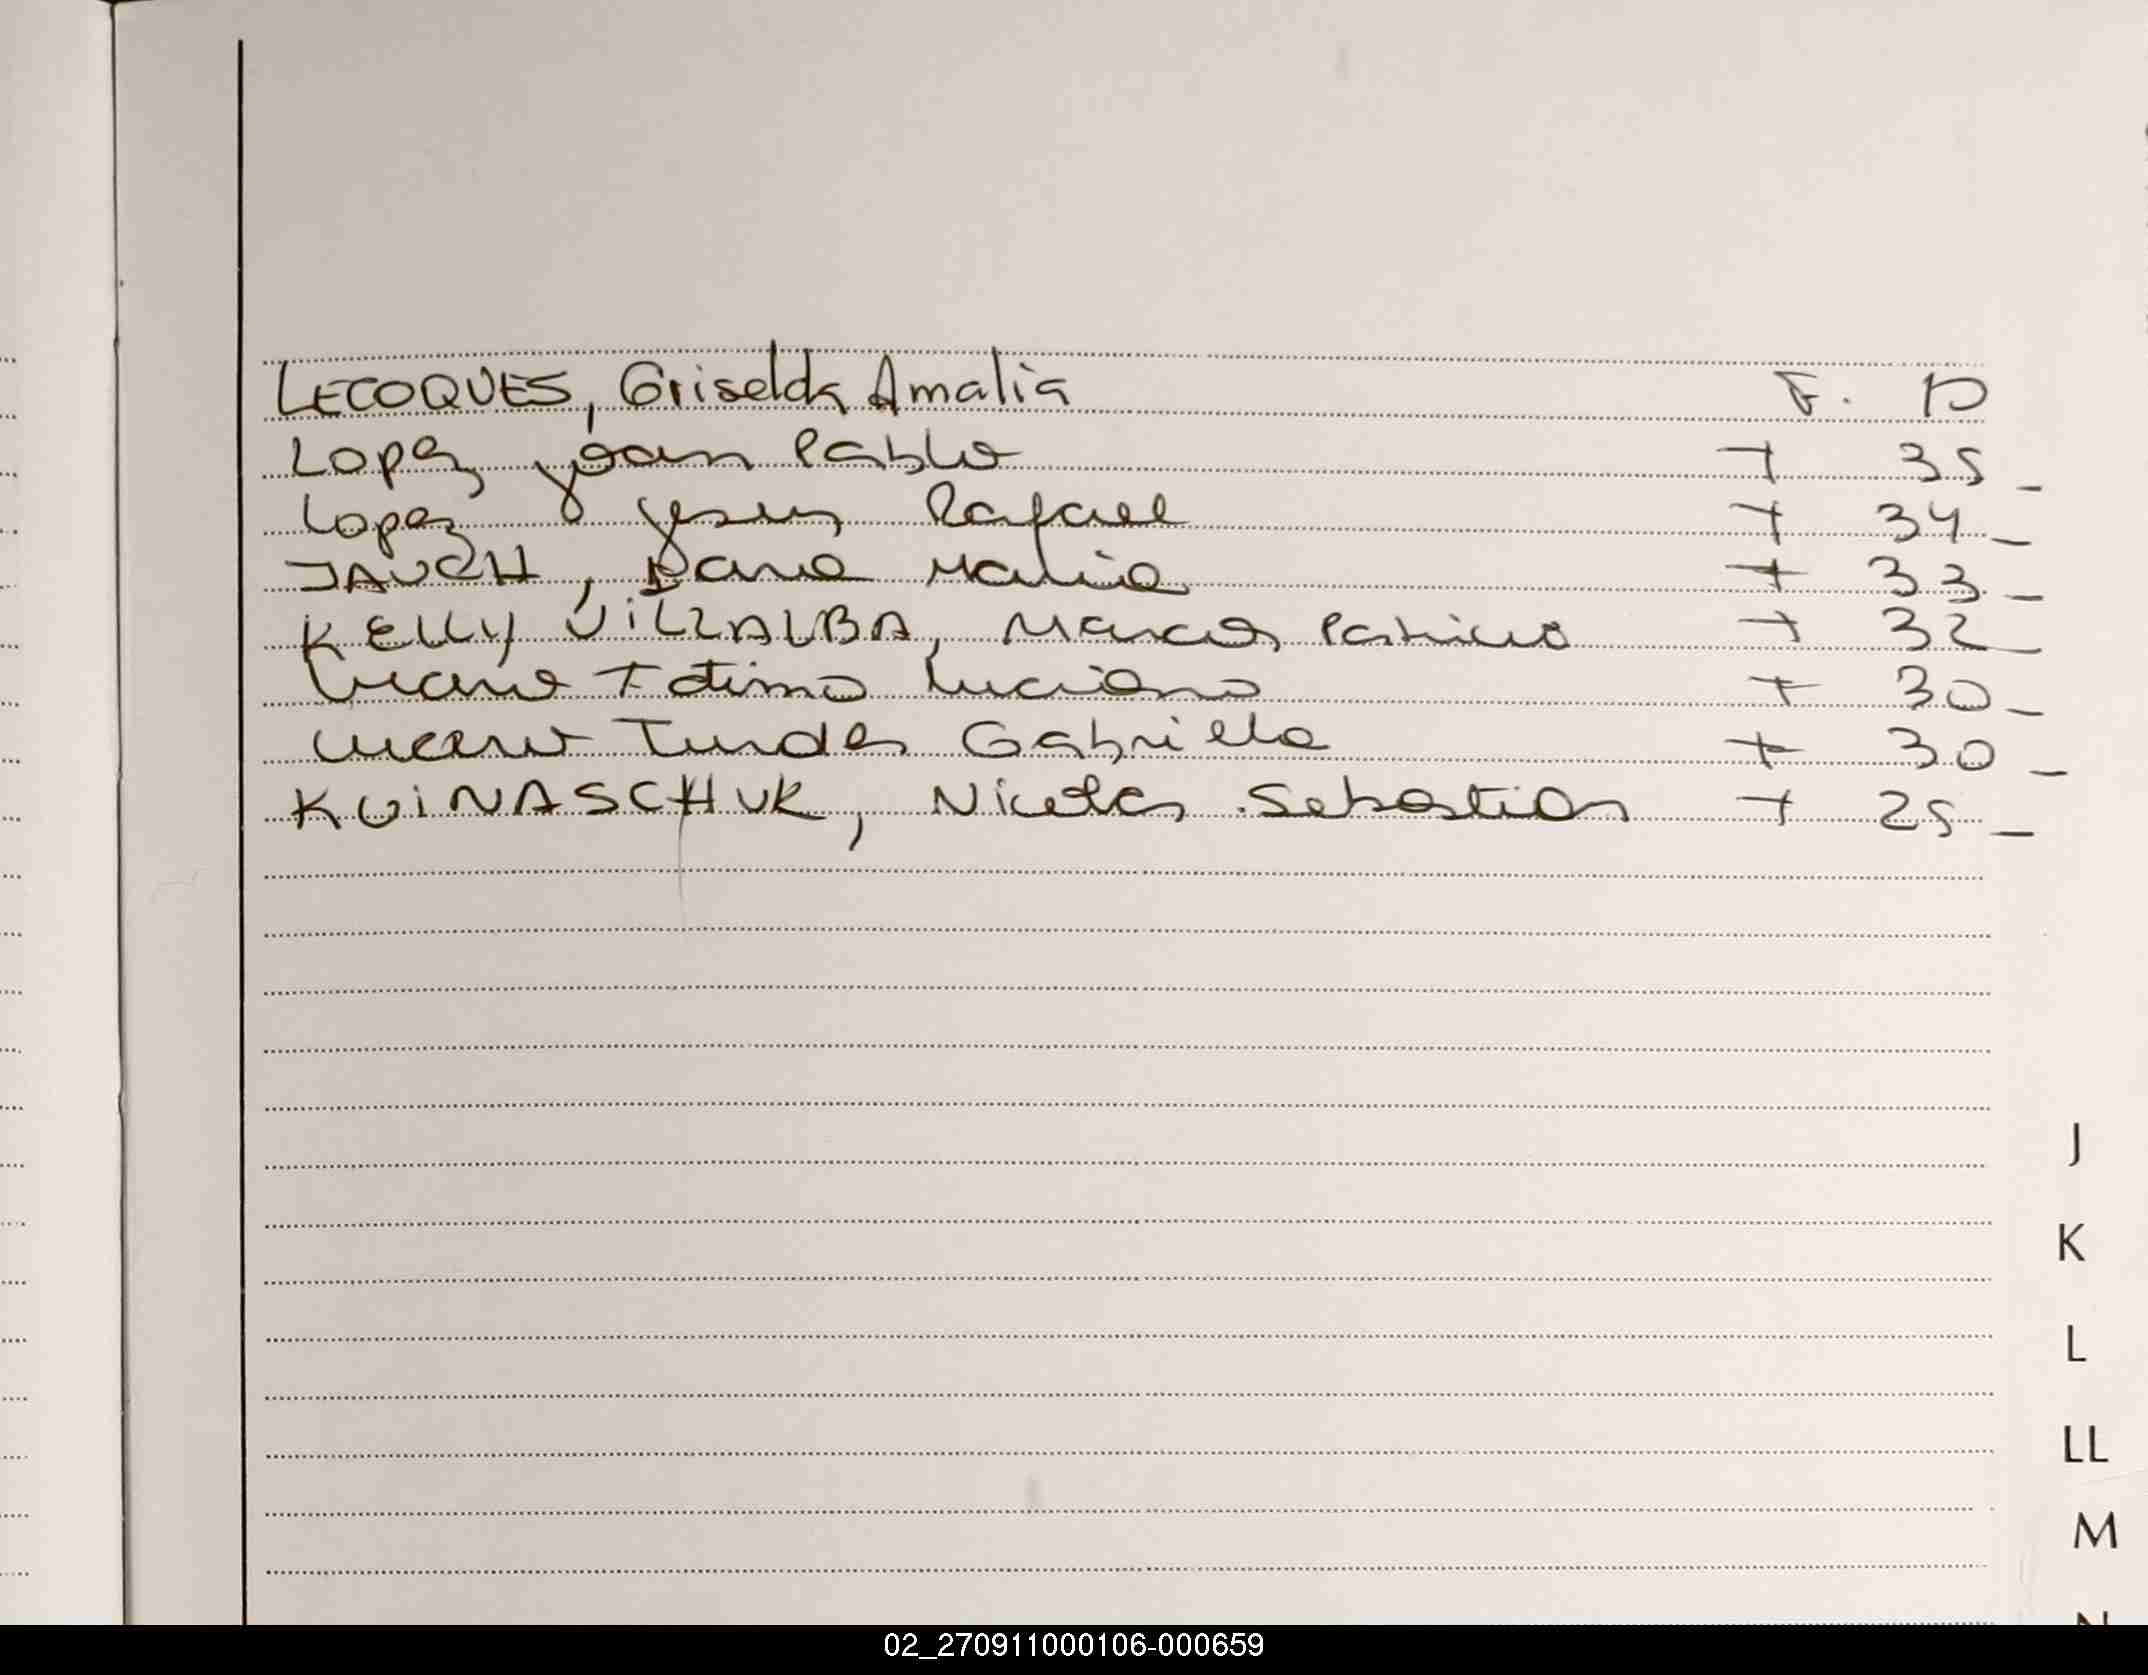 LECOQUES, Griselda Amalia F. D
Lopez Joan Pablo + 35 _
Lopez Jesus Rafael + 34 _
JAUCH, Dana Maria + 33 _
KELLY VILLALBA, Marcos Patricio + 32 _
Lucero Fatima Luciana + 30 _
Lucero Gabriela + 30 _
KUINASCHUK, Nicolas Sebastian + 25 _
J
K
L
LL
M
N
02_270911000106-000659